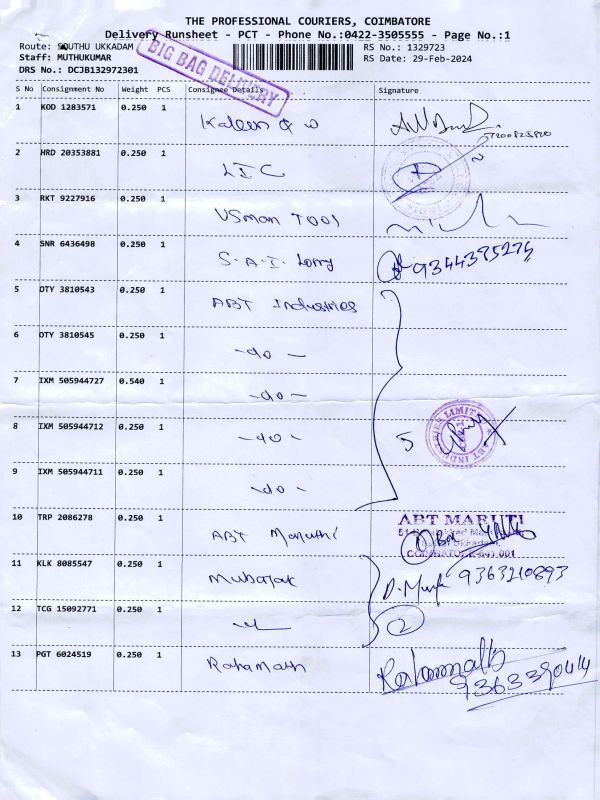 THE PROFESSIONAL COURIERS, COIMBATORE
Delivery Runsheet - PCT - Phone No.:0422-3505555 - Page No.:1
Route: SOUTHU UKKADAM
RS No.: 1329723
Staff: MUTHUKUMAR
RS Date: 29-Feb-2024
DRS No.: DCJB132972301
BIG BAG DELIVERY
S No Consignment No Weight PCS Consignee Details Signature
1 KOD 1283571 0.250 1 Kaleen & w
2 HRD 20353881 0.250 1 LIC
3 RKT 9227916 0.250 1 USman TOOl
4 SNR 6436498 0.250 1 S.A.I. Lorry 9344375274
5 DTY 3810543 0.250 1 ABT Industries
6 DTY 3810545 0.250 1 -do-
7 IXM 505944727 0.540 1 -do-
8 IXM 505944712 0.250 1 -do- 5
ABT INDUSTRIES LIMITED
9 IXM 505944711 0.250 1 -do-
10 TRP 2086278 0.250 1 ABT Maruthi
ABT MARUTI
COIMBATORE-641 001
11 KLK 8085547 0.250 1 Mubarak 9363210893
12 TCG 15092771 0.250 1 2
13 PGT 6024519 0.250 1 Rahamath Rahamath
9363390414